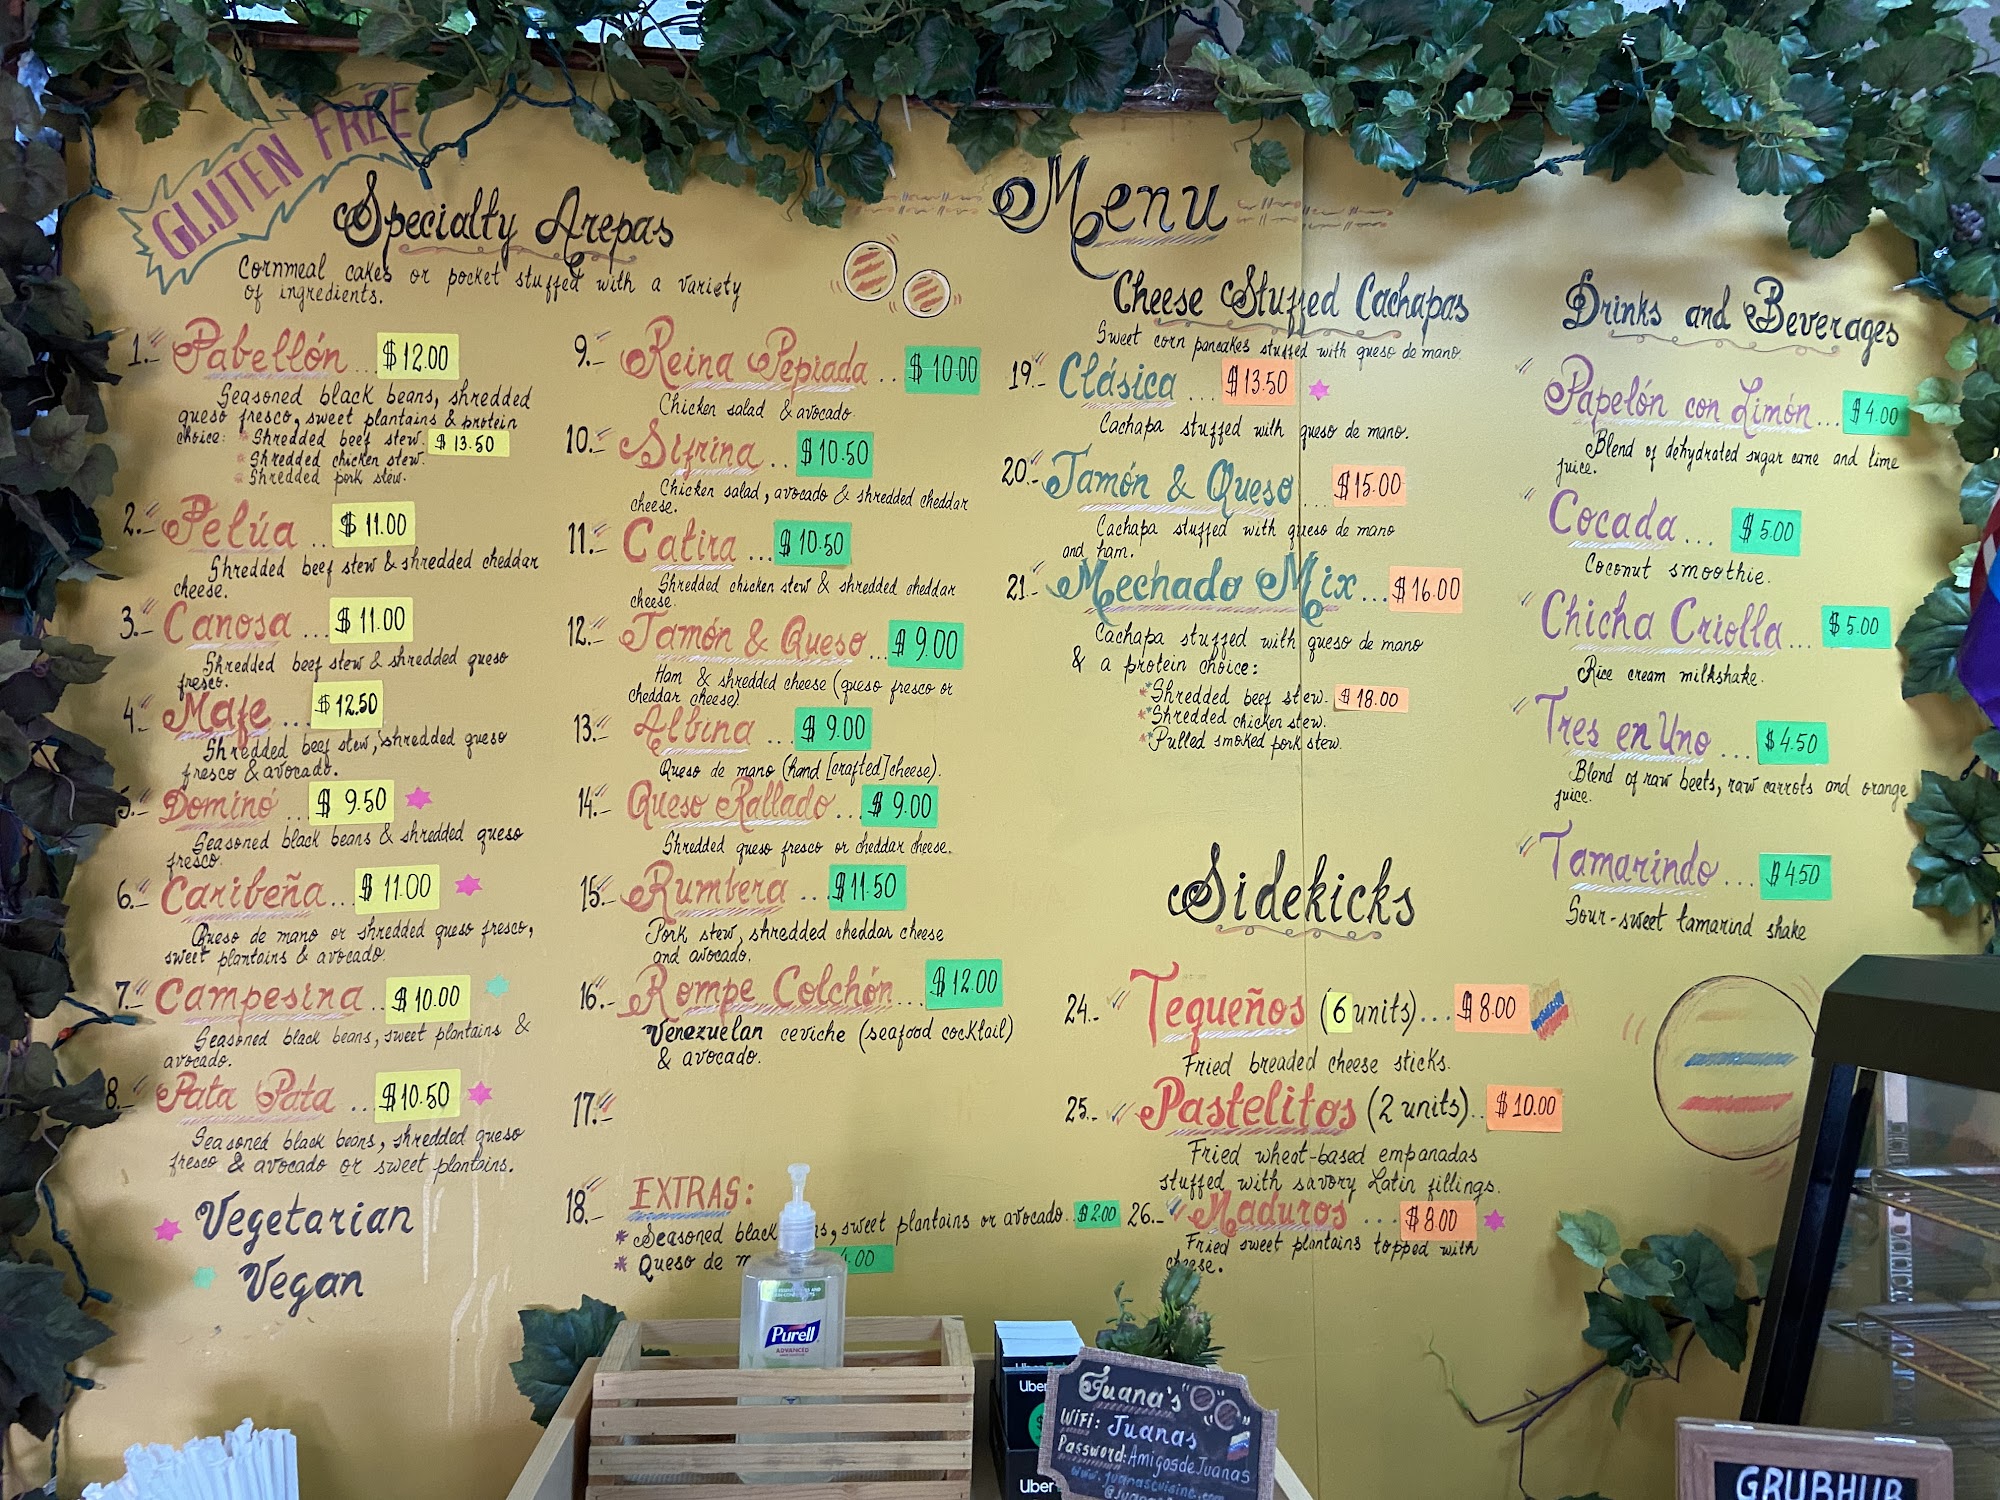 GLUTEN FREE
Menu
Specialty Arepas
Cornmeal cakes or pocket stuffed with a variety
of ingredients.
1.- Pabellón... $12.00
Seasoned black beans, shredded
queso fresco, sweet plantains & protein
choice: * Shredded beef stew. $13.50
* Shredded chicken stew.
* Shredded pork stew.
2.- Pelúa .. $11.00
Shredded beef stew & shredded cheddar
cheese.
3.- Canosa ... $11.00
Shredded beef stew & shredded queso
fresco.
4.- Mafe ... $12.50
Shredded beef stew, shredded queso
fresco & avocado.
5.- Dominó .. $9.50
Seasoned black beans & shredded queso
fresco.
6.- Caribeña... $11.00
Queso de mano or shredded queso fresco,
sweet plantains & avocado.
7.- Campesina .. $10.00
Seasoned black beans, sweet plantains &
avocado.
8.- Pata Pata ... $10.50
Seasoned black beans, shredded queso
fresco & avocado or sweet plantains.
Vegetarian
Vegan
9.- Reina Pepiada .. $10.00
Chicken salad & avocado.
10.- Sifrina .. $10.50
Chicken salad, avocado & shredded cheddar
cheese.
11.- Catira ... $10.50
Shredded chicken stew & shredded cheddar
cheese.
12.- Jamón & Queso... $9.00
Ham & shredded cheese (queso fresco or
cheddar cheese).
13.- Albina ... $9.00
Queso de mano (hand [crafted] cheese).
14.- Queso Rallado... $9.00
Shredded queso fresco or cheddar cheese.
15.- Rumbera ... $11.50
Pork stew, shredded cheddar cheese
and avocado.
16.- Rompe Colchón... $12.00
Venezuelan ceviche (seafood cocktail)
& avocado.
17.-
18.- EXTRAS:
* Seasoned black sweet plantains or avocado.. $2.00
* Queso de
Cheese Stuffed Cachapas
Sweet corn pancakes stuffed with queso de mano.
19.- Clásica ... $13.50
Cachapa stuffed with queso de mano.
20.- Jamón & Queso... $15.00
Cachapa stuffed with queso de mano
and ham.
21.- Mechado Mix... $16.00
Cachapa stuffed with queso de mano
& a protein choice:
* Shredded beef stew. $18.00
* Shredded chicken stew.
* Pulled smoked pork stew.
Sidekicks
24.- Tequeños (6 units)... $8.00
Fried breaded cheese sticks.
25.- Pastelitos (2 units).. $10.00
Fried wheat-based empanadas
stuffed with savory Latin fillings.
26.- Maduros ... $8.00
Fried sweet plantains topped with
cheese.
Drinks and Beverages
Papelón con Limón... $4.00
Blend of dehydrated sugar cane and lime
juice.
Cocada ... $5.00
Coconut smoothie.
Chicha Criolla... $5.00
Rice cream milkshake.
Tres en Uno ... $4.50
Blend of raw beets, raw carrots and orange
juice.
Tamarindo ... $4.50
Sour-sweet tamarind shake
Purell
ADVANCED
Uber
Uber
Juana's
WiFi: Juanas
Password: AmigosdeJuanas
www.juanascuisine.com
GRUBHUB